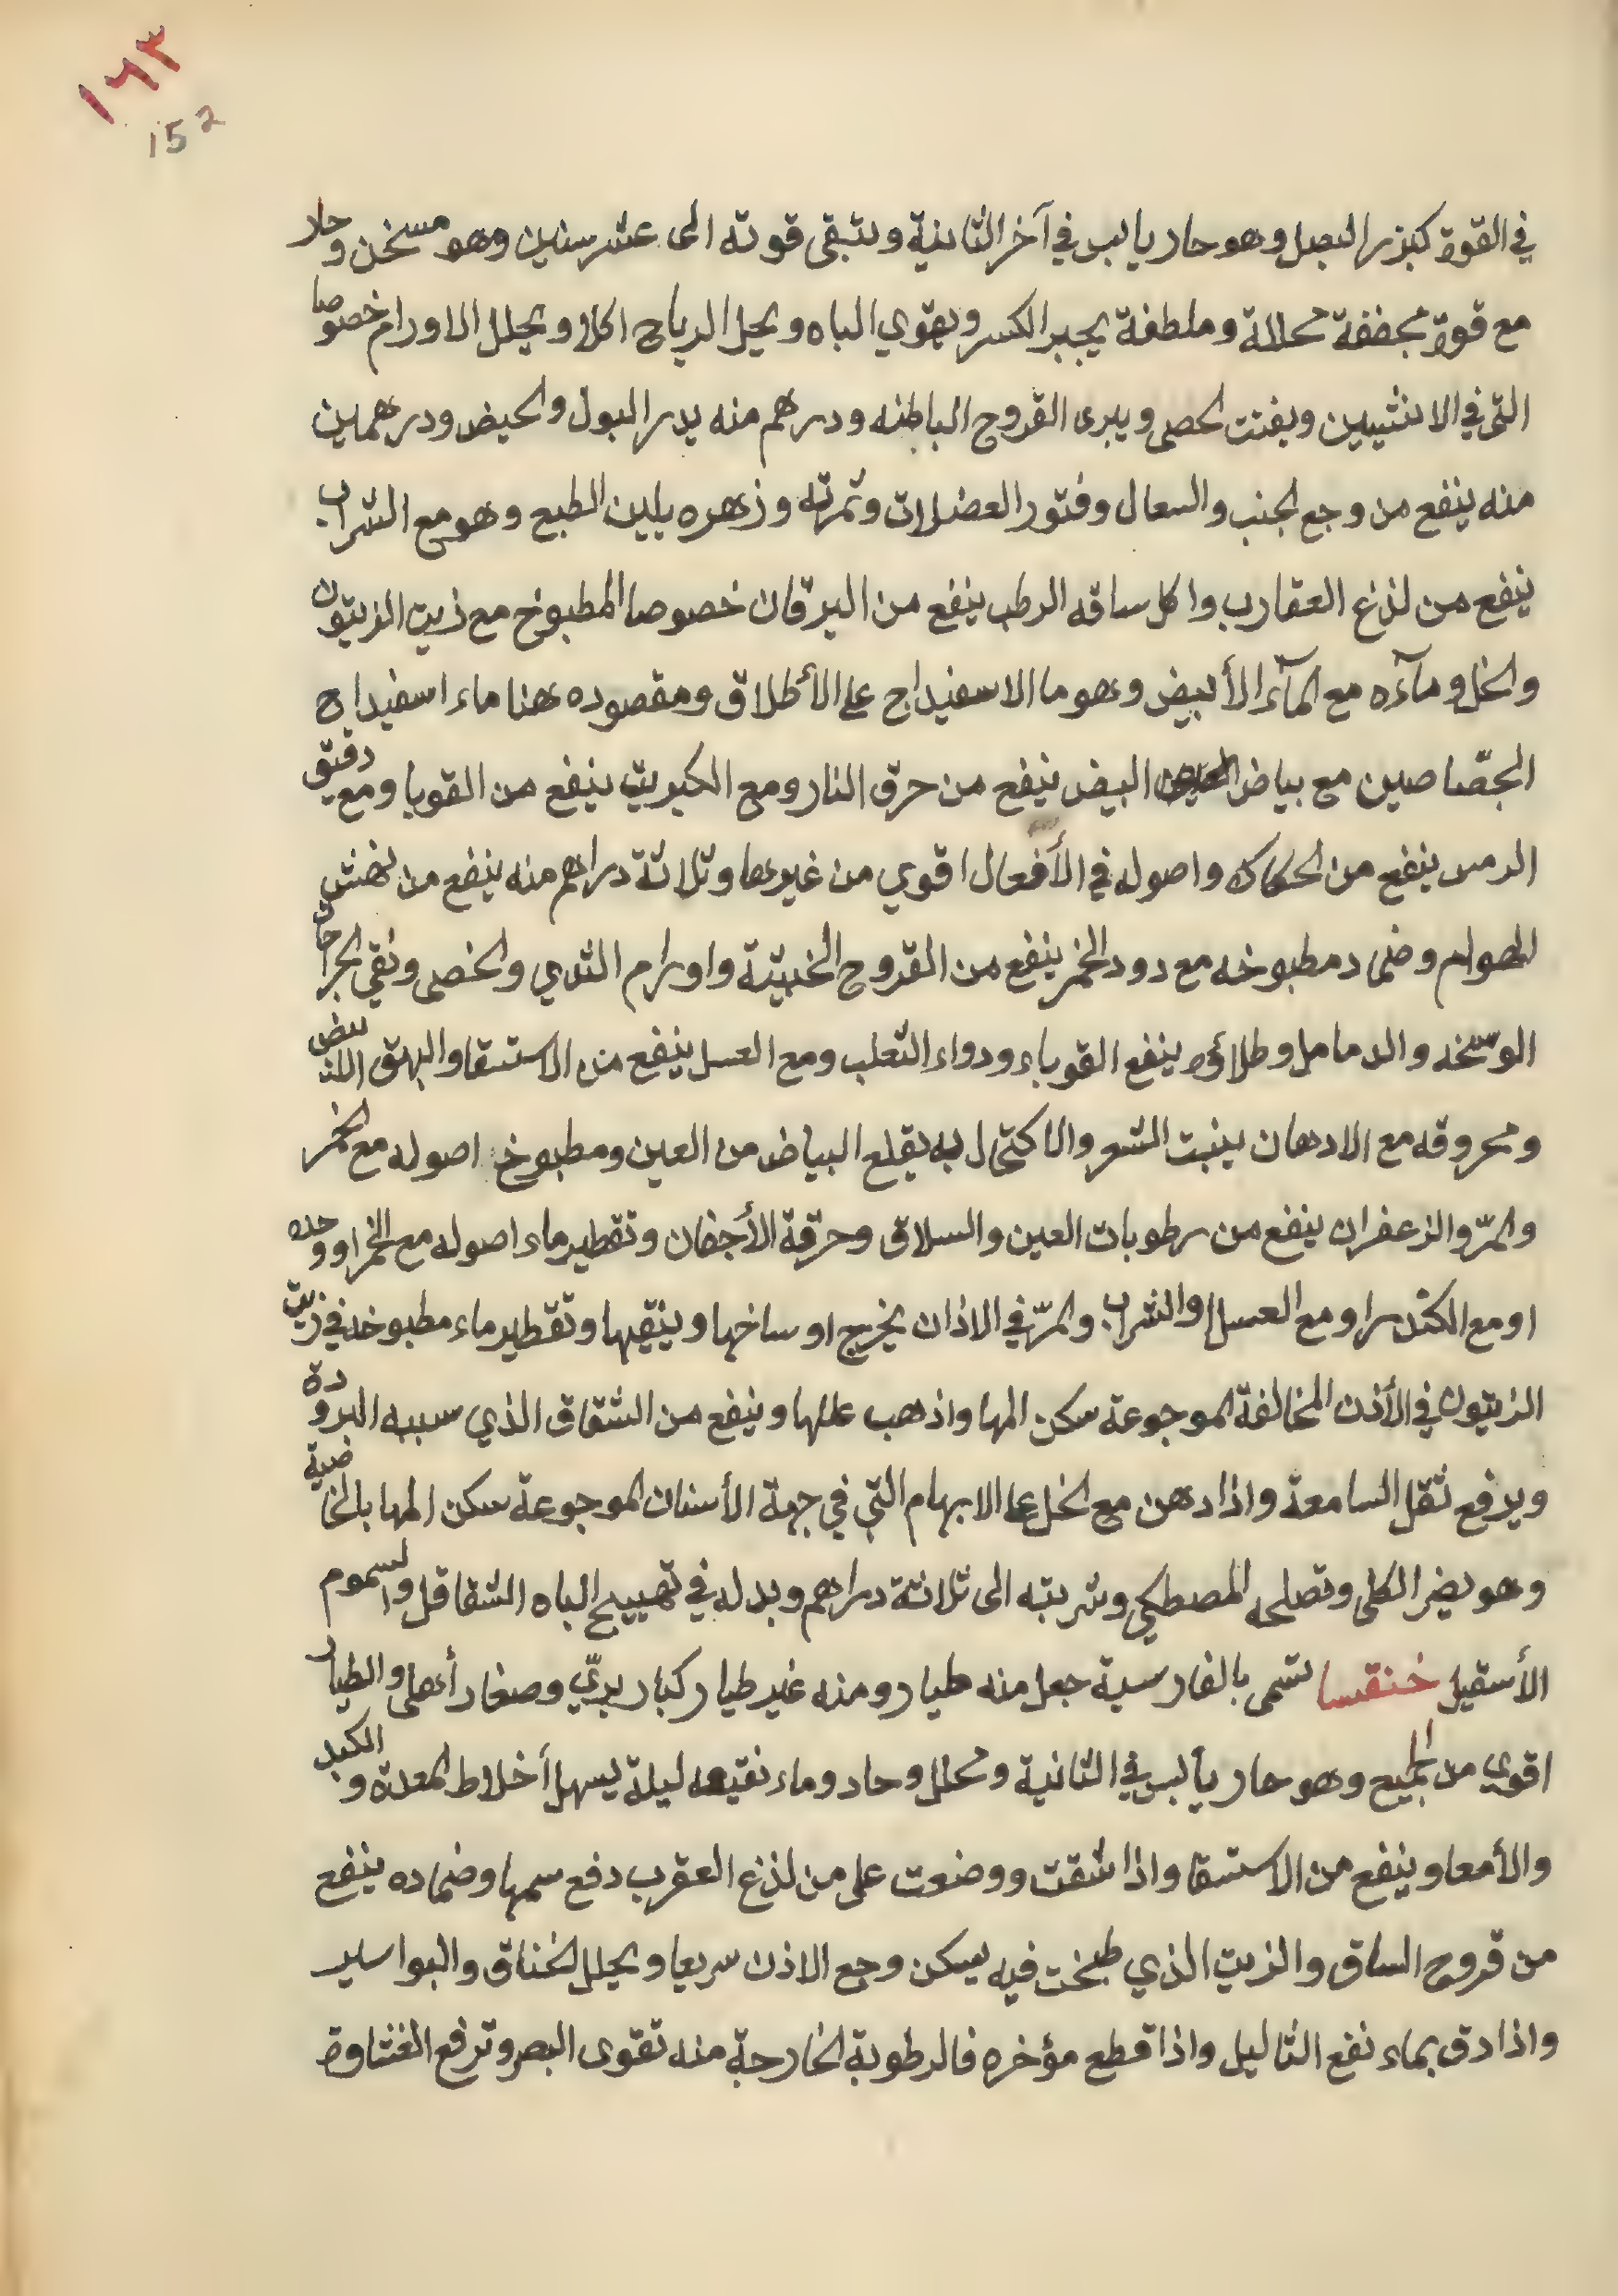 ١٦٣
152
في القوة كبزر البصل وهو حار يابس في آخر الثانية وتبقى قوته الى عشر سنين وهو مسخن وحاد
مع قوة مجففة محللة وملطفة يجبر الكسر ويقوي الباه ويحل الرياح اكلا ويحلل الاورام خصوصا
التي في الانثيين ويفتت الحصى ويبرى القروح الباطنه ودرهم منه يدر البول والحيض ودرهمين
منه ينفع من وجع الجنب والسعال وفتور العضلات وثمرته وزهره يلين الطبع وهو مع الشراب
ينفع من لذع العقارب واكل ساقه الرطب ينفع من اليرقان خصوصا المطبوخ مع زيت الزيتون
والخل ومآءه مع المآء الأبيض وهو ما الاسفيداج على الأطلاق ومقصوده هنا ماء اسفيداج
الجصّاصين مع بياض البيض ينفع من حرق النار ومع الكبريت ينفع من القوبا ومع دقيق
الرمس ينفع من الحكاك واصوله في الأفعال اقوي من غيرها وثلاثة دراهم منه ينفع من نهش
الهوام وضماد مطبوخه مع درد الخمر ينفع من القروح الخبيثة واورام الثدي والخصى ونقي الجراحات
الوسخه والدمامل وطلاؤه ينفع القوباء ودواء الثعلب ومع العسل ينفع من الاستسقا والبهق الابيض
ومحروقه مع الادهان ينبت الشعر والاكتحال به يقلع البياض من العين ومطبوخ اصوله مع الخمر
والمرّ والزعفران ينفع من رطوبات العين والسلاق وحرقة الأجفان وتقطير ماء اصوله مع الخمر او وحده
او مع الكندر او مع العسل والشراب والمرّ في الاذان يخرج اوساخها وينقيها وتقطير ماء مطبوخه في زيت
الزيتون في الأذن المخالفة الموجوعة سكن المها واذهب عللها وينفع من الشقاق الذي سببه البرودة
ويرفع ثقل السامعة واذا دهن مع الخل على الابهام التي في جهة الأسنان الموجوعة سكن المها بالخاضية
وهو يضر الكلى وتصلحه المصطكي وشربته الى ثلاثة دراهم وبدله في تهييج الباه الشقاقل والسموم
الأسقيل خنفسا تسمى بالفارسية جعل منه طيار ومنه غير طيار كبار بريّ وصغار أهلى والطيار
اقوي من الجميع وهو حار يابس في الثانية ومحلل وحاد وماء نقيعه ليلة يسهل أخلاط المعدة والكبد
والأمعا وينفع من الاستسقا واذا شقت ووضعت على من لذع العقرب دفع سمها وضماده ينفع
من قروح الساق والزيت الذي طبخت فيه يسكن وجع الاذن سريعا ويحلل الخناق والبواسير
واذا دق بماء نفع الثاليل واذا قطع مؤخره فالرطوبة الخارجة منه تقوى البصر وترفع الغشاوة